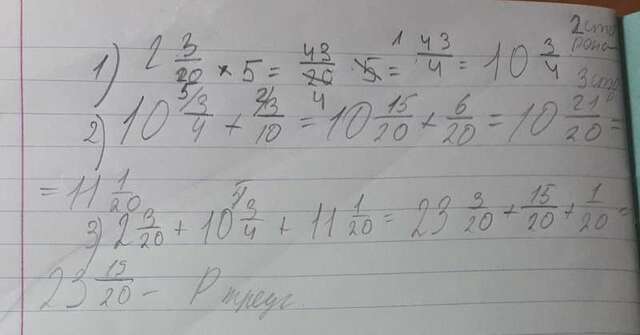 1) 2 3/20 × 5 = 43/20 · 5 = 43/4 = 10 3/4 2 сторона
2) 10 3/4 + 3/10 = 10 15/20 + 6/20 = 10 21/20 = 3 ст
= 11 1/20
3) 2 3/20 + 10 3/4 + 11 1/20 = 23 3/20 + 15/20 + 1/20 =
23 19/20 – P треуг